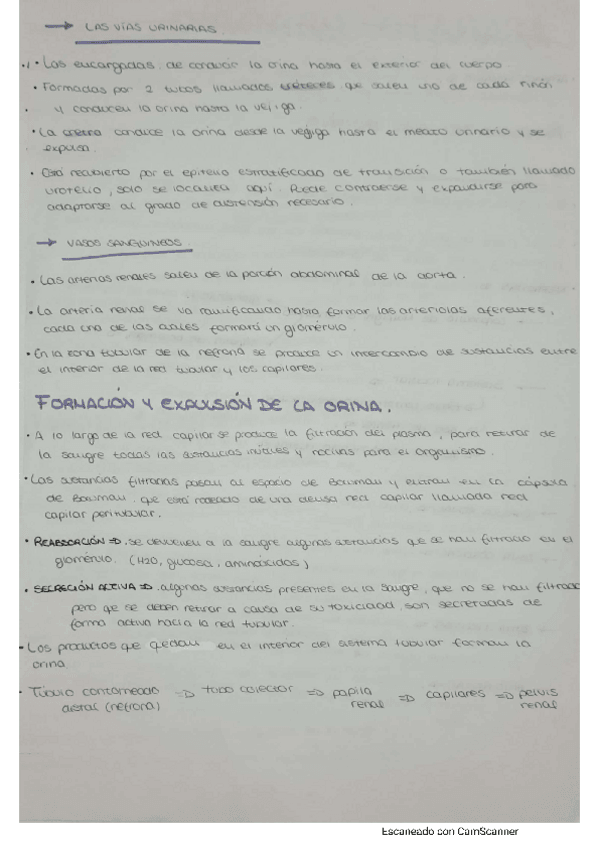 → LAS VÍAS URINARIAS
• Las encargadas de conducir la orina hasta el exterior del cuerpo.
• Formadas por 2 tubos llamados uréteres que salen uno de cada riñón
y conducen la orina hasta la vejiga.
• La uretra conduce la orina desde la vejiga hasta el meato urinario y se
expulsa.
• Está recubierto por el epitelio estratificado de transición o también llamado
urotelio, solo se localiza aquí. Puede contraerse y expandirse para
adaptarse al grado de distensión necesario.
→ VASOS SANGUINEOS.
• Las arterias renales salen de la porción abdominal de la aorta.
• La arteria renal se va ramificando hasta formar las arteriolas aferentes,
cada una de las cuales formará un glomérulo.
• En la zona tubular de la nefrona se produce un intercambio de sustancias entre
el interior de la red tubular y los capilares.
FORMACIÓN Y EXPULSIÓN DE LA ORINA.
• A lo largo de la red capilar se produce la filtración del plasma, para retirar de
la sangre todas las sustancias inútiles y nocivas para el organismo.
• Las sustancias filtradas pasan al espacio de Bowman y en la cápsula
de Bowman que está rodeado de una densa red capilar llamada red
capilar peritubular.
• REABSORCIÓN => se devuelven a la sangre algunas sustancias que se han filtrado en el
glomérulo. (H2O, glucosa, aminoácidos)
• SECRECIÓN ACTIVA => algunas sustancias presentes en la sangre, que no se han filtrado
pero que se deben retirar a causa de su toxicidad, son secretadas de
forma activa hacia la red tubular.
• Los productos que quedan en el interior del sistema tubular forman la
orina.
• Túbulo contorneado => tubo colector => papila => capilares => pelvis
distal (nefrona) renal renal
Escaneado con CamScanner